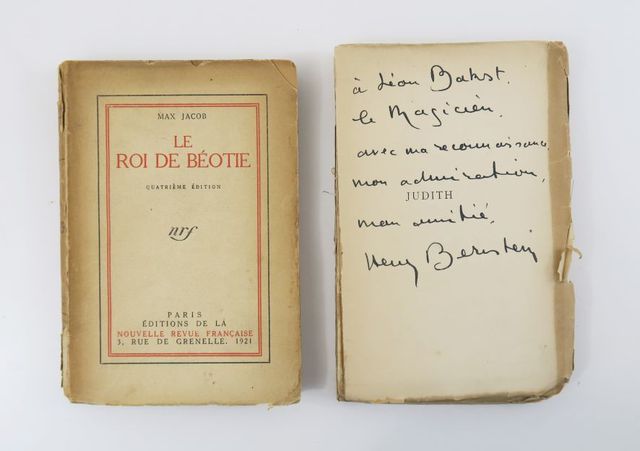 MAX JACOB
LE
ROI DE BÉOTIE
QUATRIÈME ÉDITION
nrf
PARIS
ÉDITIONS DE LA
NOUVELLE REVUE FRANÇAISE
3, RUE DE GRENELLE. 1921
à Léon Bakst,
le Magicien,
avec ma reconnaissance,
mon admiration,
JUDITH
mon amitié.
Henry Bernstein